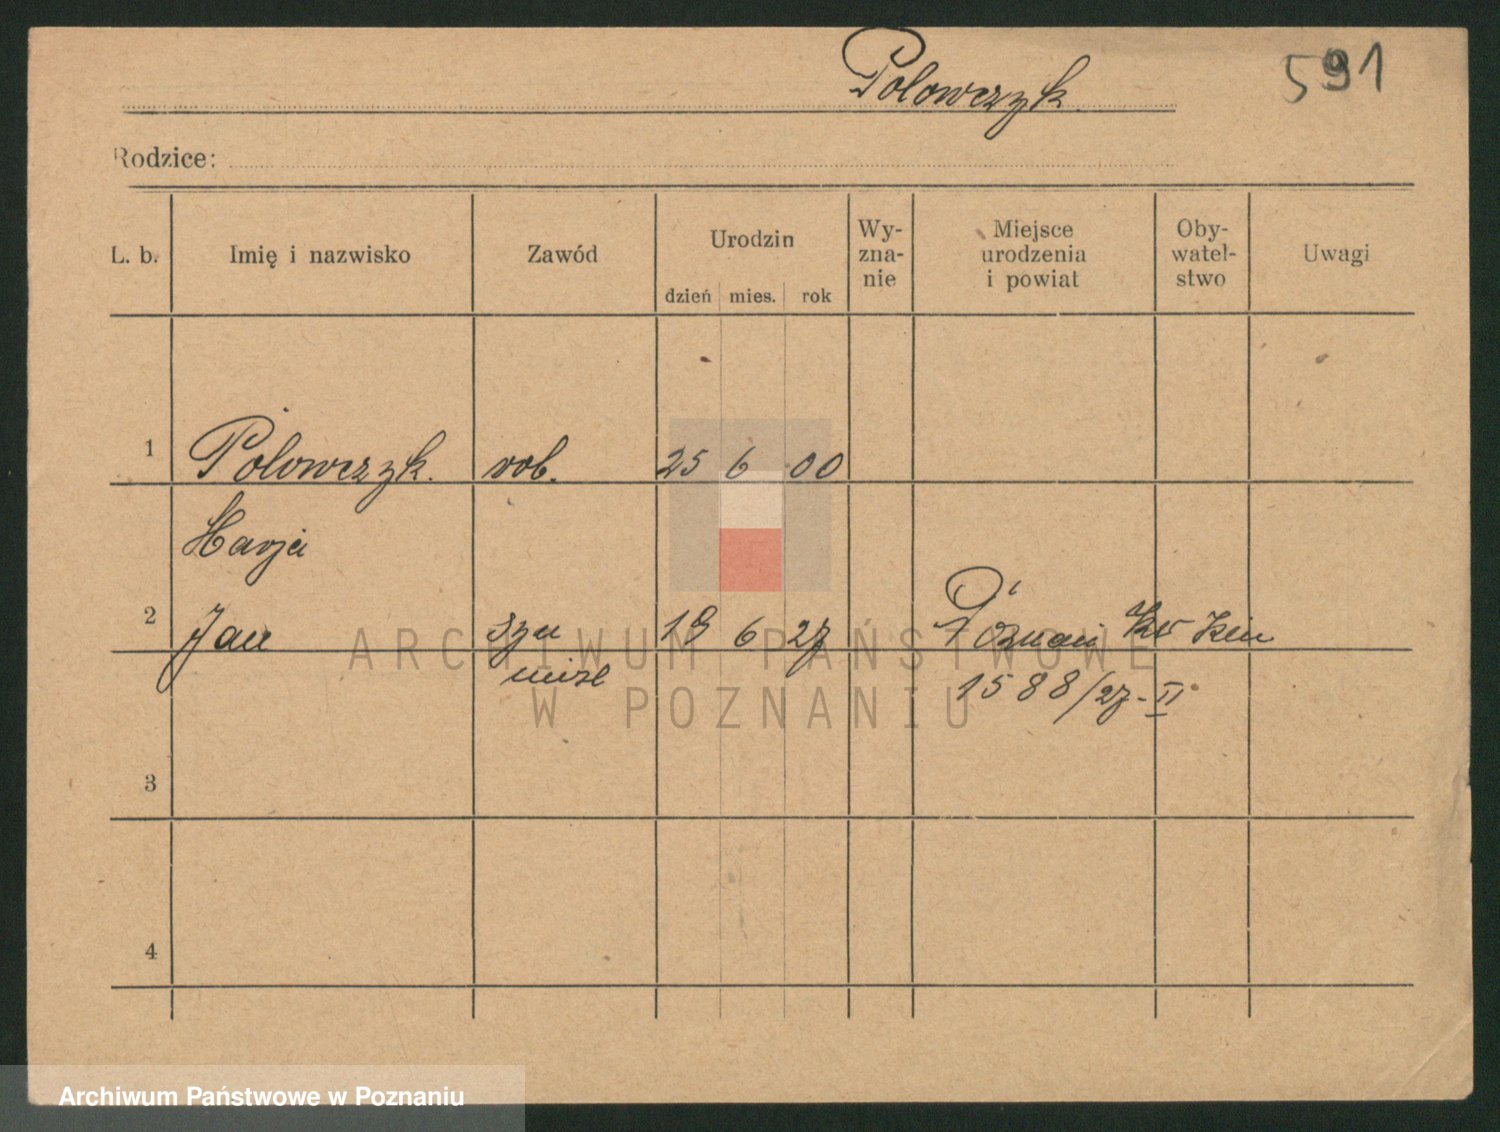 Polowczyk
591
Rodzice:
L. b. Imię i nazwisko Zawód Urodzin dzień mies. rok Wy-zna-nie Miejsce urodzenia i powiat Oby-watel-stwo Uwagi
1 Polowczyk. rob. 25 6 00
Marja
2 Jan syn 19 6 27 Poznań
niezl
1588/27-II
3
4
ARCHIWUM PAŃSTWOWE
W POZNANIU
Archiwum Państwowe w Poznaniu